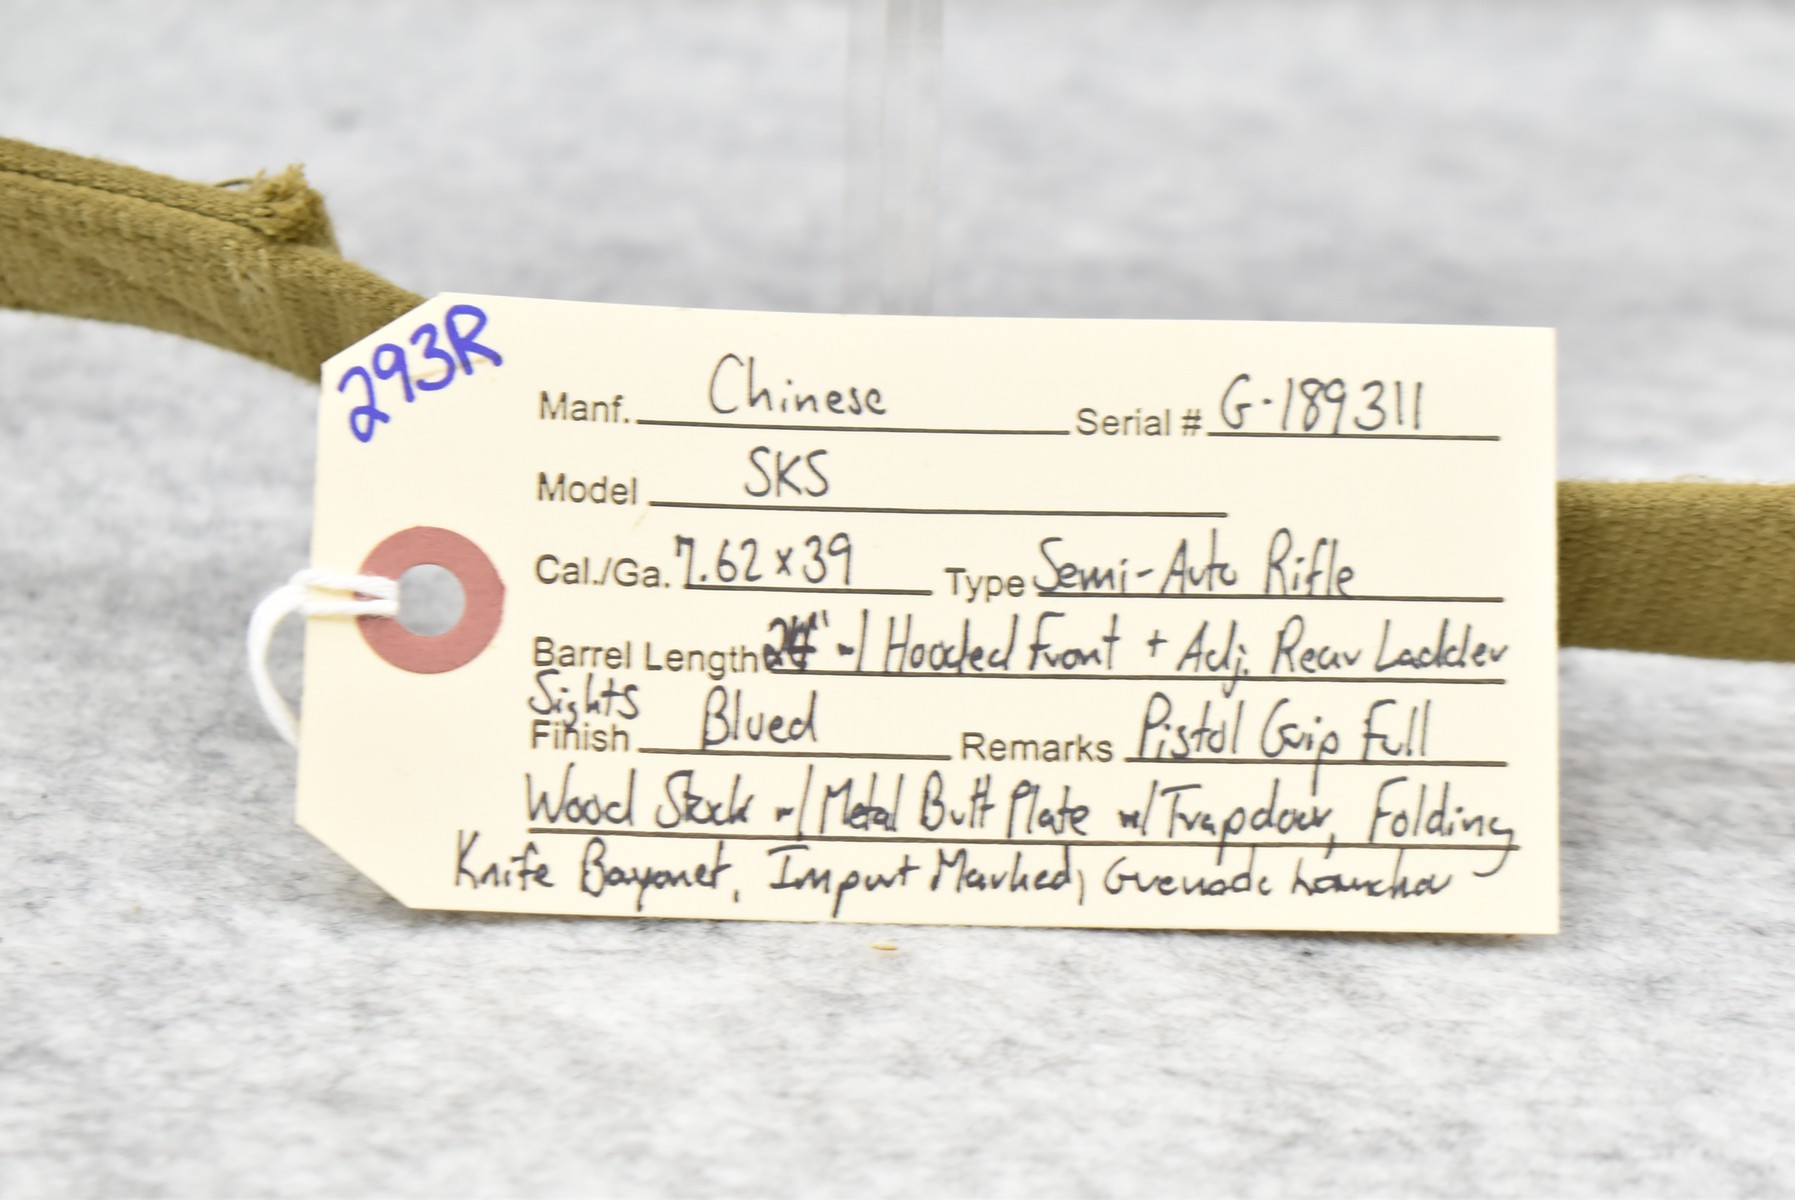 293R
Manf. Chinese Serial # G-189311
Model SKS
Cal./Ga. 7.62x39 Type Semi-Auto Rifle
Barrel Length 24" w/ Hooded Front + Adj. Rear Ladder
Sights
Finish Blued Remarks Pistol Grip Full
Wood Stock w/ Metal Butt Plate w/ Trapdoor, Folding
Knife Bayonet, Import Marked, Grenade Launcher